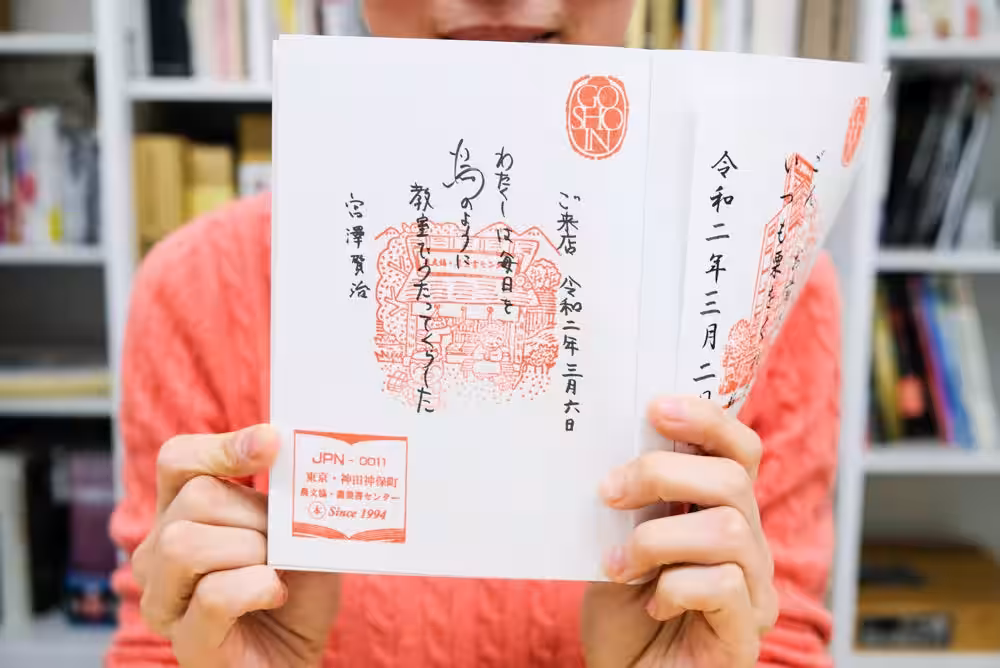 GO
SHO
IN
ご来店 令和二年三月六日
わたくしは毎日を
鳥のように
教室でうたってくらした
宮澤賢治
JPN - 0011
東京・神田神保町
農文協・農業書センター
本 Since 1994
ごん
いつも栗をく
令和二年三月二日